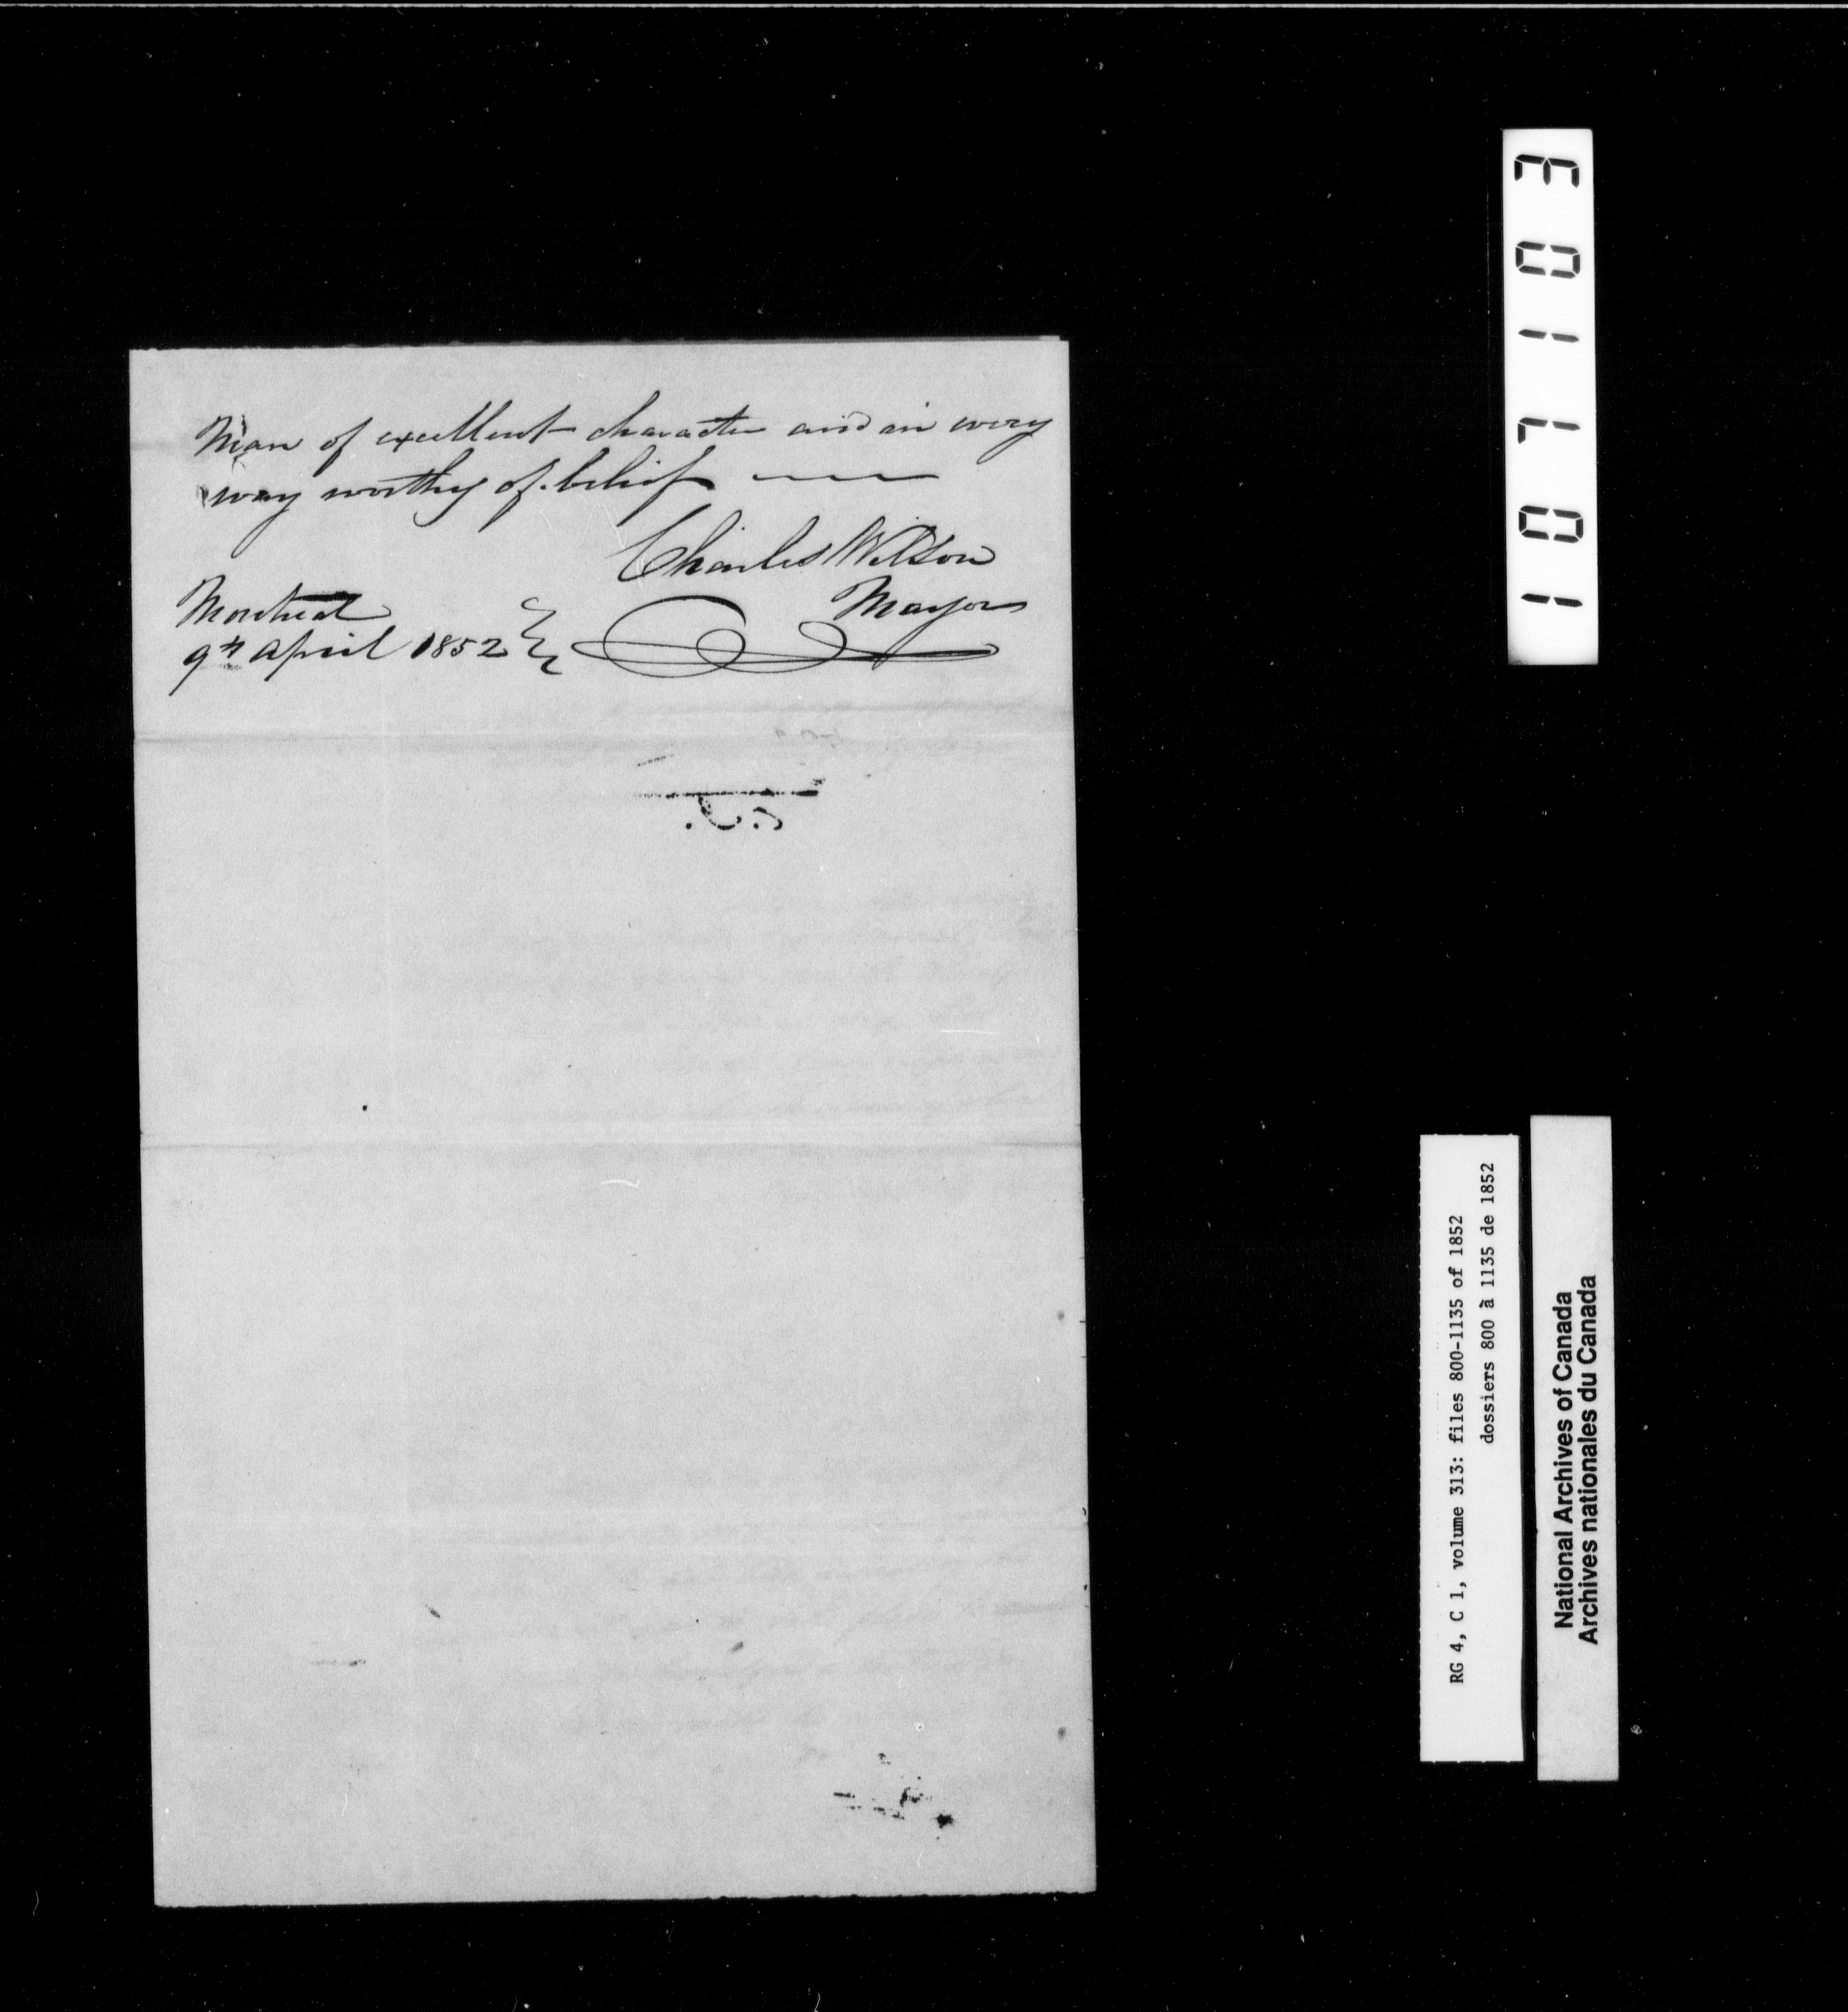 Man of excellent character and in every
way worthy of belief
Charles Wilson
Mayor
Montreal
9th April 1852
101103
RG 4, C 1, volume 313: files 800-1135 of 1852
dossiers 800 à 1135 de 1852
National Archives of Canada
Archives nationales du Canada